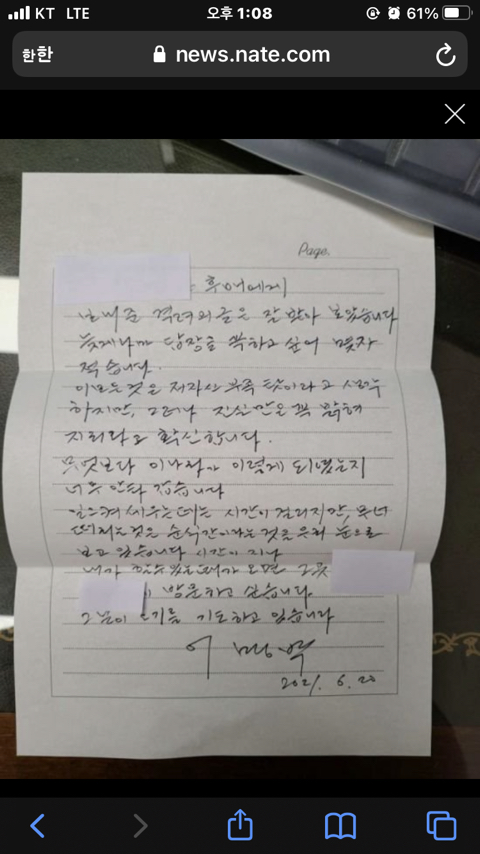 KT LTE 오후 1:08 61%
한한 news.nate.com
Page.
후배에게
보내준 격려의 글은 잘 받아 보았습니다
늦게나마 답장을 쓰고 싶어 몇자
적습니다.
이 모든것은 저 자신 부족 탓이라고 생각
하지만, 그러나 진실만은 꼭 밝혀
지리라고 확신합니다.
무엇보다 이나라가 이렇게 되었는지
너무 안타 깝습니다
일으켜 세우는데는 시간이 걸리지만, 무너
떠리는것은 순식간이라는 것을 우리 눈으로
보고 있습니다 시간이 지나
내가 할수있는때가 오면 그곳
방문하고 싶습니다.
그 날이 오기를 기도하고 있습니다
이명박
2021. 6. 20